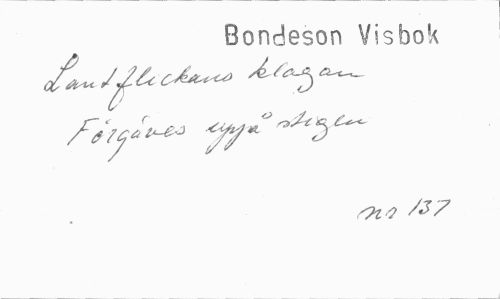 Bondeson Visbok
Lantflickans klagan
Förgäves uppå stigen
nr 137